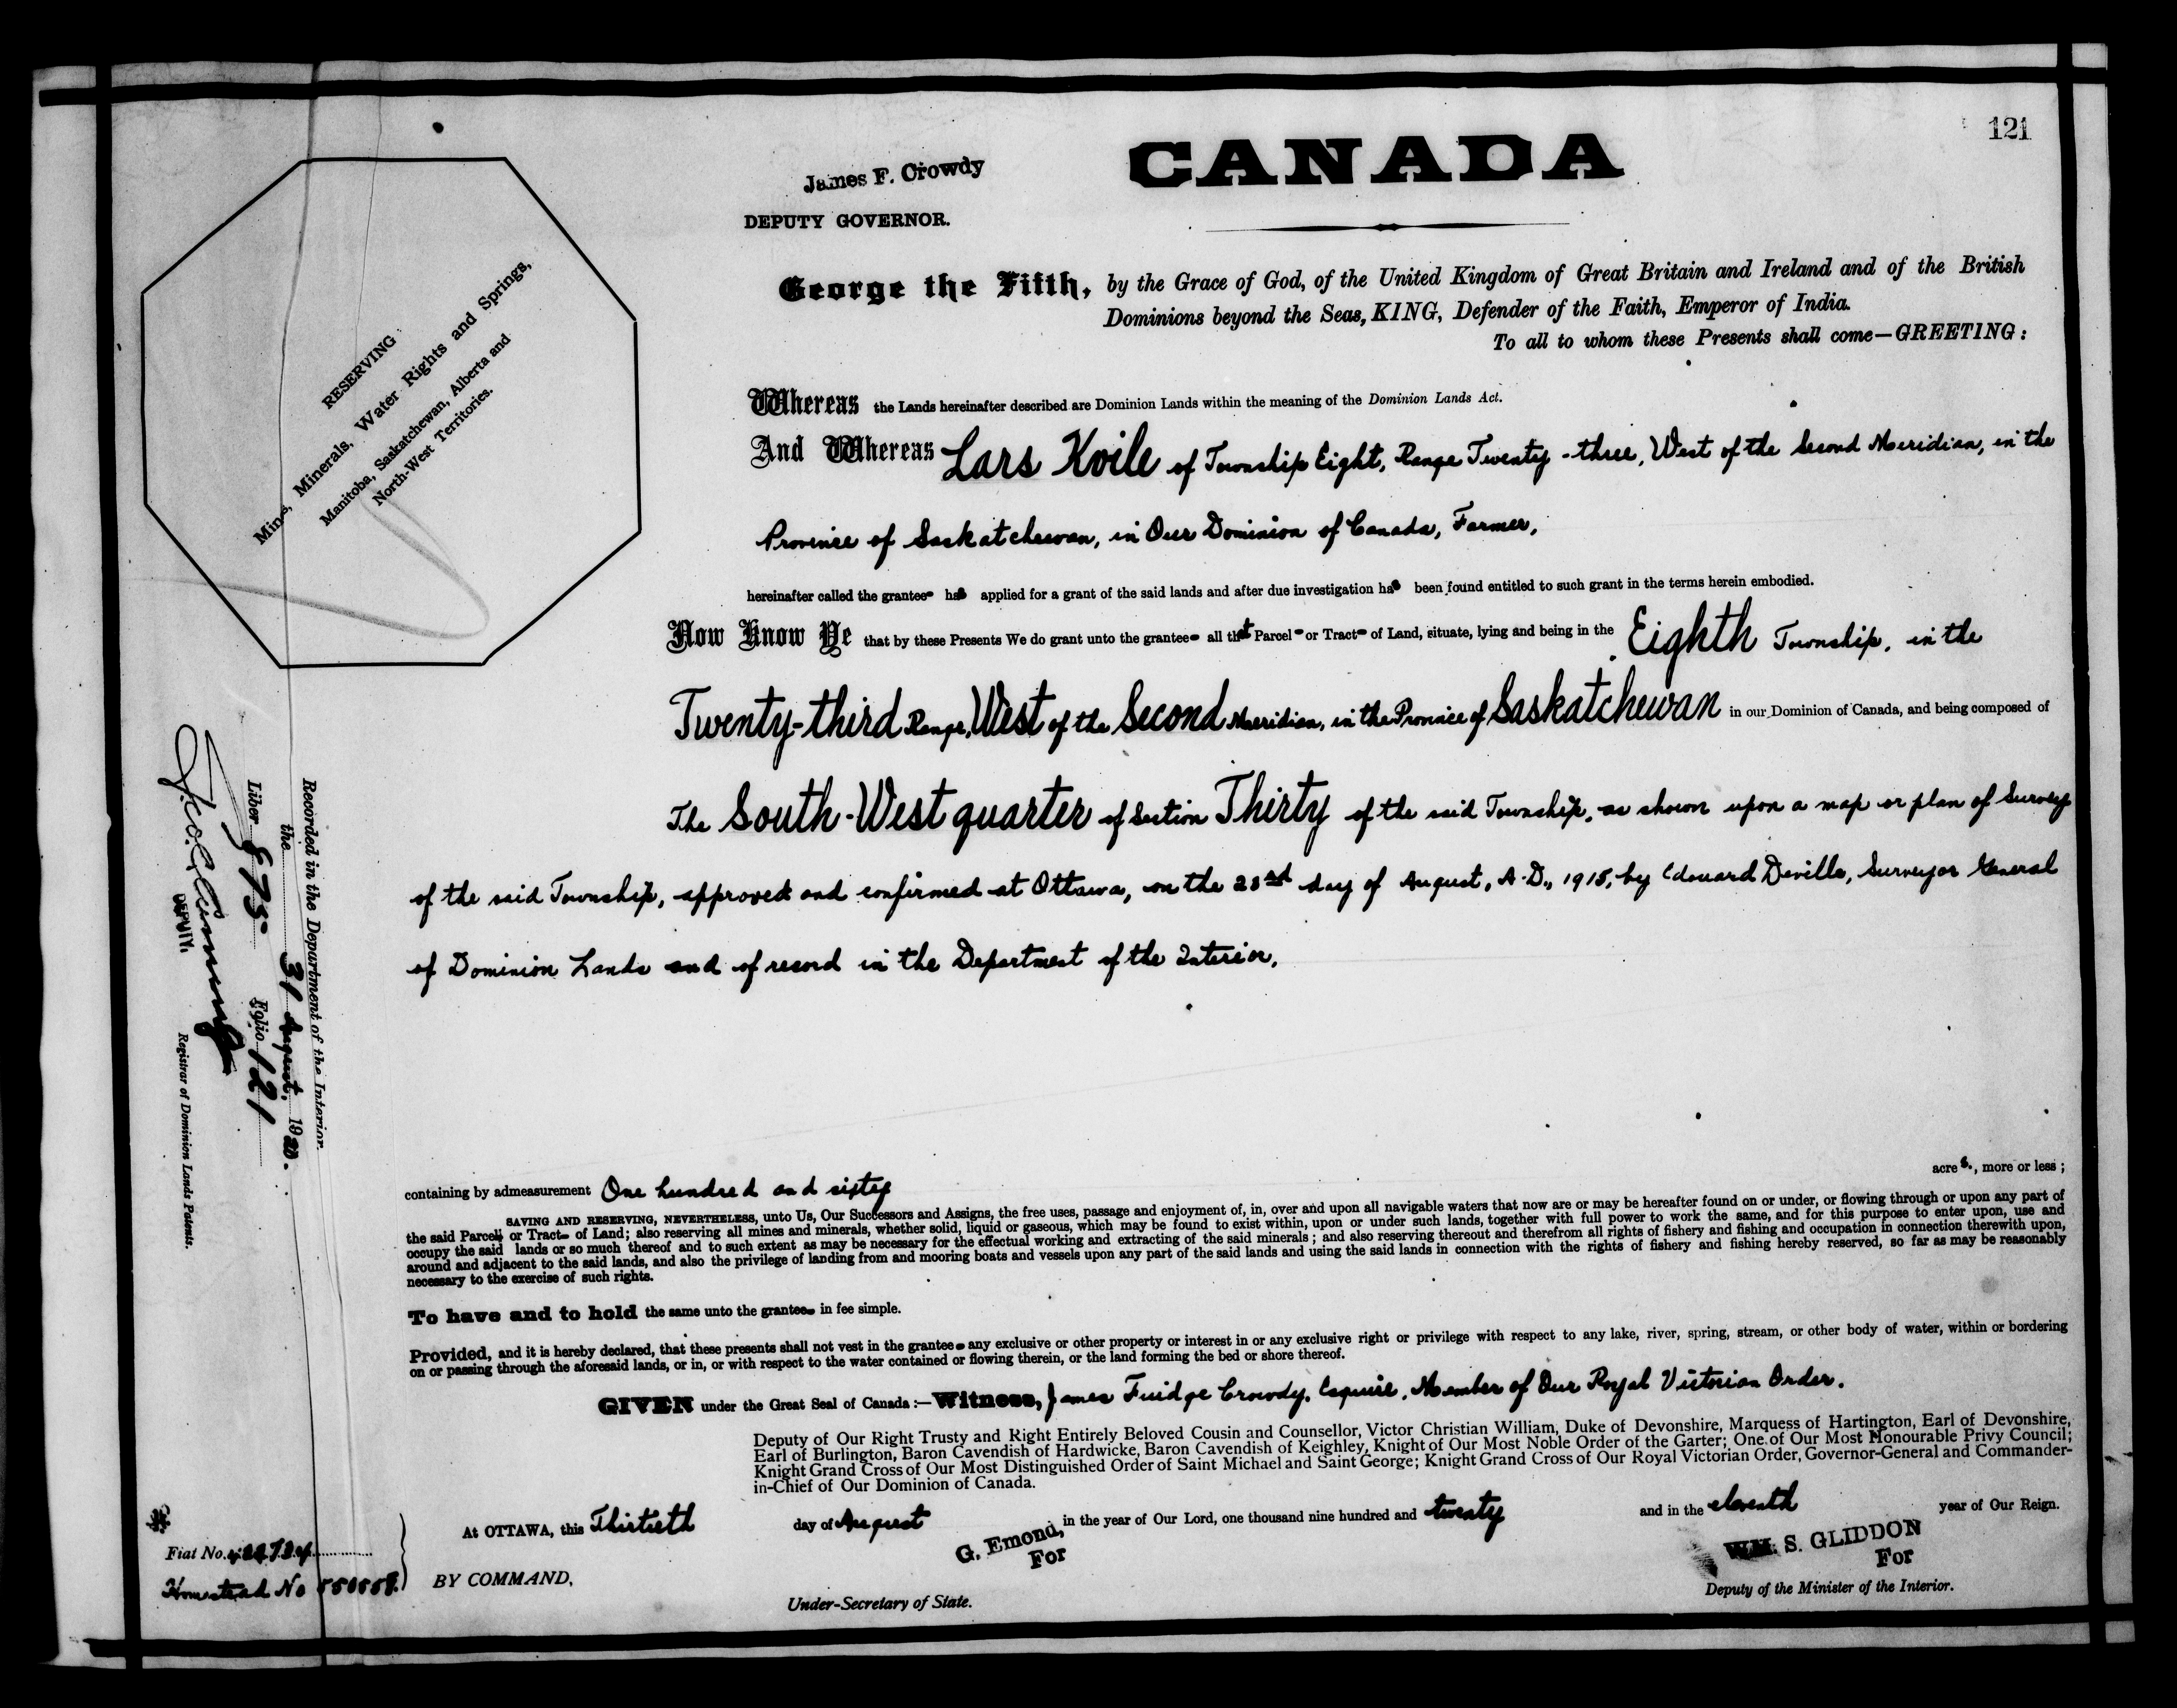 121
James F. Crowdy
DEPUTY GOVERNOR.
CANADA
George the Fifth, by the Grace of God, of the United Kingdom of Great Britain and Ireland and of the British
Dominions beyond the Seas, KING, Defender of the Faith, Emperor of India.
To all to whom these Presents shall come—GREETING:
RESERVING
Mines, Minerals, Water Rights and Springs,
Manitoba, Saskatchewan, Alberta and
North-West Territories.
Whereas the Lands hereinafter described are Dominion Lands within the meaning of the Dominion Lands Act.
And Whereas Lars Kvile of Township Eight, Range Twenty-three, West of the Second Meridian, in the
Province of Saskatchewan, in Our Dominion of Canada, Farmer,
hereinafter called the grantee has applied for a grant of the said lands and after due investigation has been found entitled to such grant in the terms herein embodied.
Now Know Ye that by these Presents We do grant unto the grantee all that Parcel or Tract of Land, situate, lying and being in the Eighth Township, in the
Twenty-third Range, West of the Second Meridian, in the Province of Saskatchewan in our Dominion of Canada, and being composed of
The South-West quarter of Section Thirty of the said Township, as shown upon a map or plan of Survey
of the said Township, approved and confirmed at Ottawa, on the day of August, A.D., by Edouard Deville, Surveyor General
of Dominion Lands and of record in the Department of the Interior.
containing by admeasurement One hundred and sixty acres, more or less;
SAVING AND RESERVING, NEVERTHELESS, unto Us, Our Successors and Assigns, the free uses, passage and enjoyment of, in, over and upon all navigable waters that now are or may be hereafter found on or under, or flowing through or upon any part of
the said Parcel or Tract of Land; also reserving all mines and minerals, whether solid, liquid or gaseous, which may be found to exist within, upon or under such lands, together with full power to work the same, and for this purpose to enter upon, use and
occupy the said lands or so much thereof and to such extent as may be necessary for the effectual working and extracting of the said minerals; and also reserving thereout and therefrom all rights of fishery and fishing and occupation in connection therewith upon,
around and adjacent to the said lands, and also the privilege of landing from and mooring boats and vessels upon any part of the said lands and using the said lands in connection with the rights of fishery and fishing hereby reserved, so far as may be reasonably
necessary to the exercise of such rights.
To have and to hold the same unto the grantee in fee simple.
Provided, and it is hereby declared, that these presents shall not vest in the grantee any exclusive or other property or interest in or any exclusive right or privilege with respect to any lake, river, spring, stream, or other body of water, within or bordering
on or passing through the aforesaid lands, or in, or with respect to the water contained or flowing therein, or the land forming the bed or shore thereof.
GIVEN under the Great Seal of Canada:—Witness, James Fuidge Crowdy, Esquire, Member of Our Royal Victorian Order.
Deputy of Our Right Trusty and Right Entirely Beloved Cousin and Counsellor, Victor Christian William, Duke of Devonshire, Marquess of Hartington, Earl of Devonshire,
Earl of Burlington, Baron Cavendish of Hardwicke, Baron Cavendish of Keighley, Knight of Our Most Noble Order of the Garter; One of Our Most Honourable Privy Council;
Knight Grand Cross of Our Most Distinguished Order of Saint Michael and Saint George; Knight Grand Cross of Our Royal Victorian Order, Governor-General and Commander-
in-Chief of Our Dominion of Canada.
At OTTAWA, this Thirtieth day of August in the year of Our Lord, one thousand nine hundred and twenty and in the eleventh year of Our Reign.
G. Emond,
For
WM. S. GLIDDON
For
BY COMMAND,
Under-Secretary of State.
Deputy of the Minister of the Interior.
Recorded in the Department of the Interior
the 31 August, 1920.
Liber 875 Folio 121
DEPUTY.
Registrar of Dominion Lands Patents.
Fiat No.
Homestead No